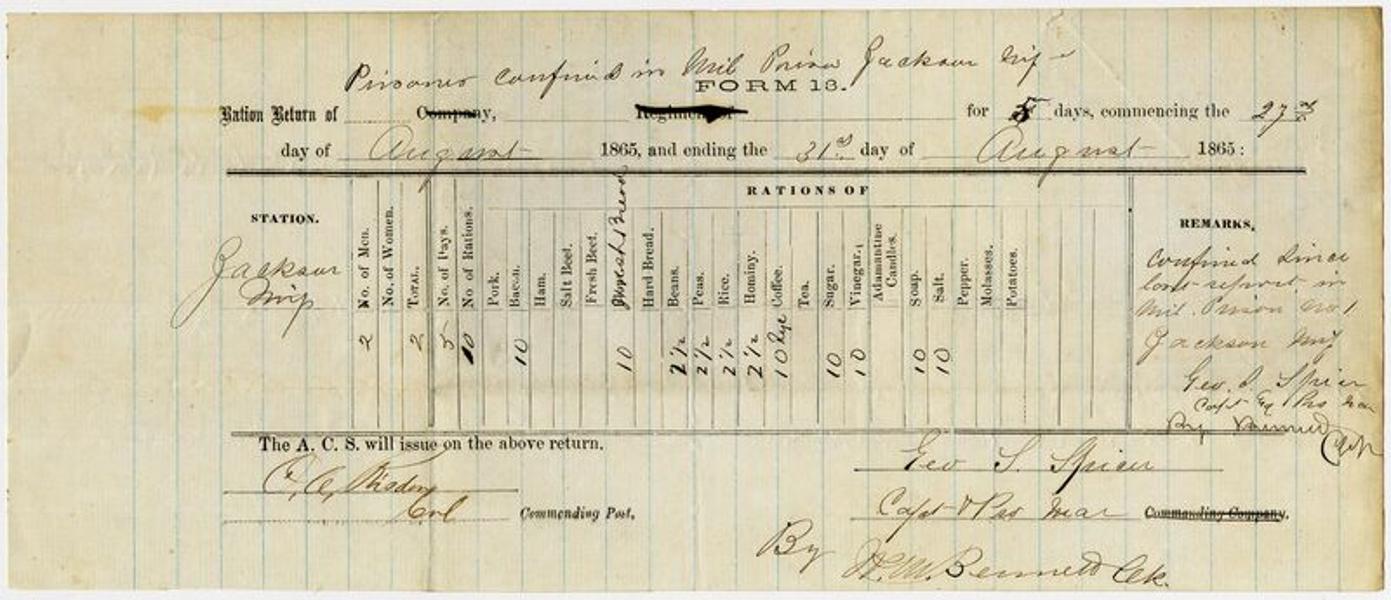 Prisoners confined in Mil Prison Jackson Miſ
FORM 13.
Ration Return of Company, Regiment of for 5 days, commencing the 27
day of August 1865, and ending the 31st day of August 1865:
RATIONS OF
STATION. No. of Men. No. of Women. TOTAL. No. of Days. No of Rations. Pork. Bacon. Ham. Salt Beef. Fresh Beef. Bread Hard Bread. Beans. Peas. Rice. Hominy. Coffee. Tea. Sugar. Vinegar. Adamantine Candles. Soap. Salt. Pepper. Molasses. Potatoes. REMARKS,
Jackson
Miſ
2 2 5 10 10 10 2½ 2½ 2½ 2½ 10 Rye 10 10 10 10
Confined Since
last report in
Mil. Prison No. 1
Jackson Miſ
Geo. S. Spicer
Capt & Pro Mar
By Bennett Clk
The A. C. S. will issue on the above return.
Geo S. Spicer
Col Commending Post,
Capt & Pro Mar Commanding Company.
By H. M. Bennett Clk.